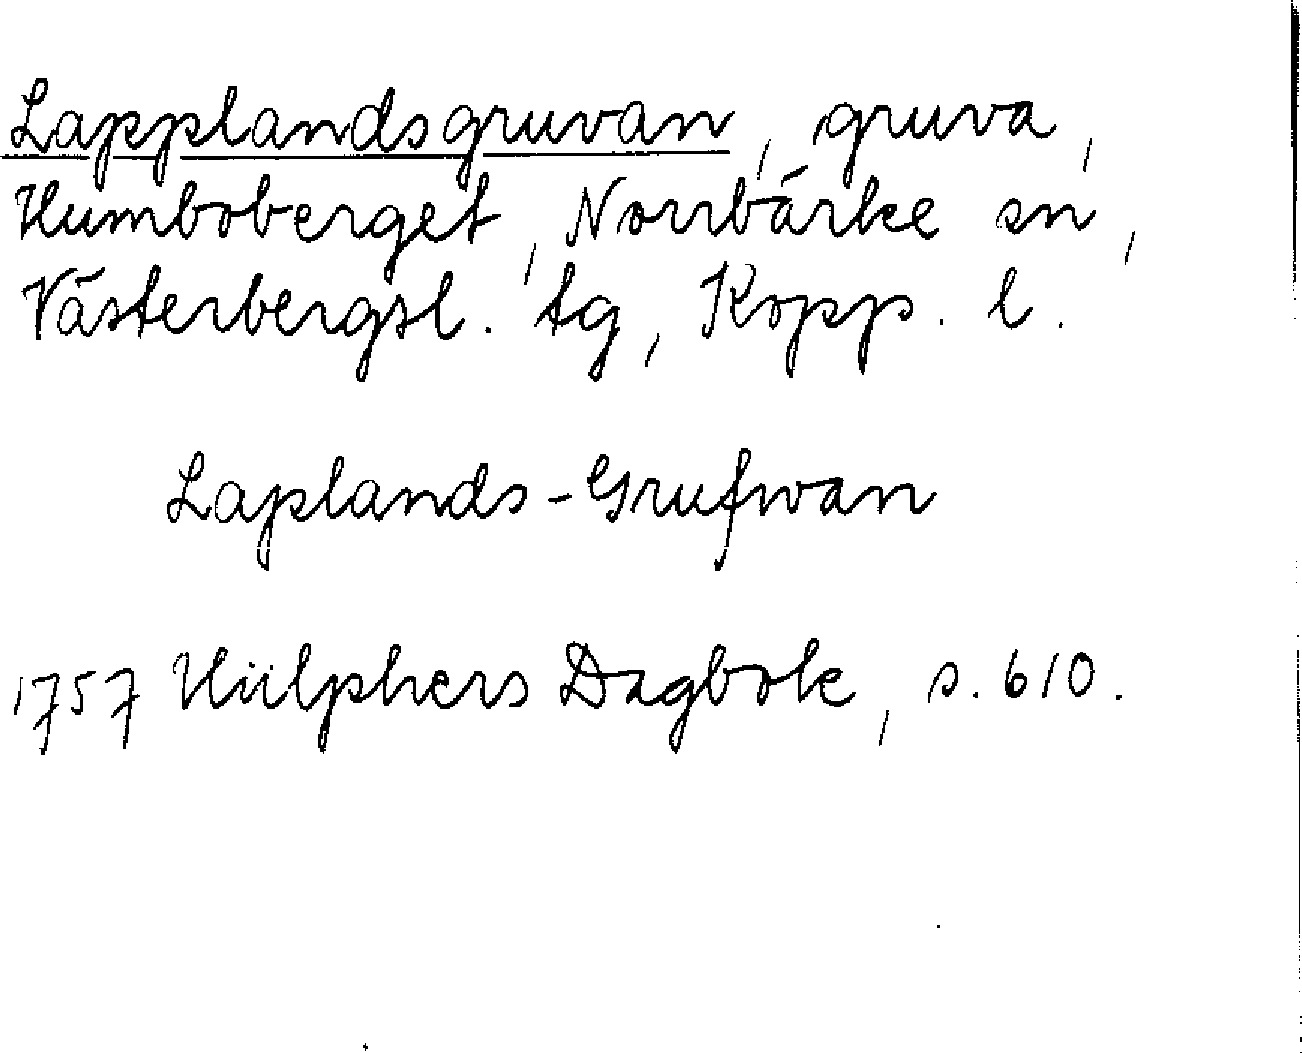 Lapplandsgruvan, gruva,
Humboberget, Norrbärke sn,
Västerbergsl. tg, Kopp. l.
Laplands-Grufwan
1757 Hülphers Dagbok, s. 610.